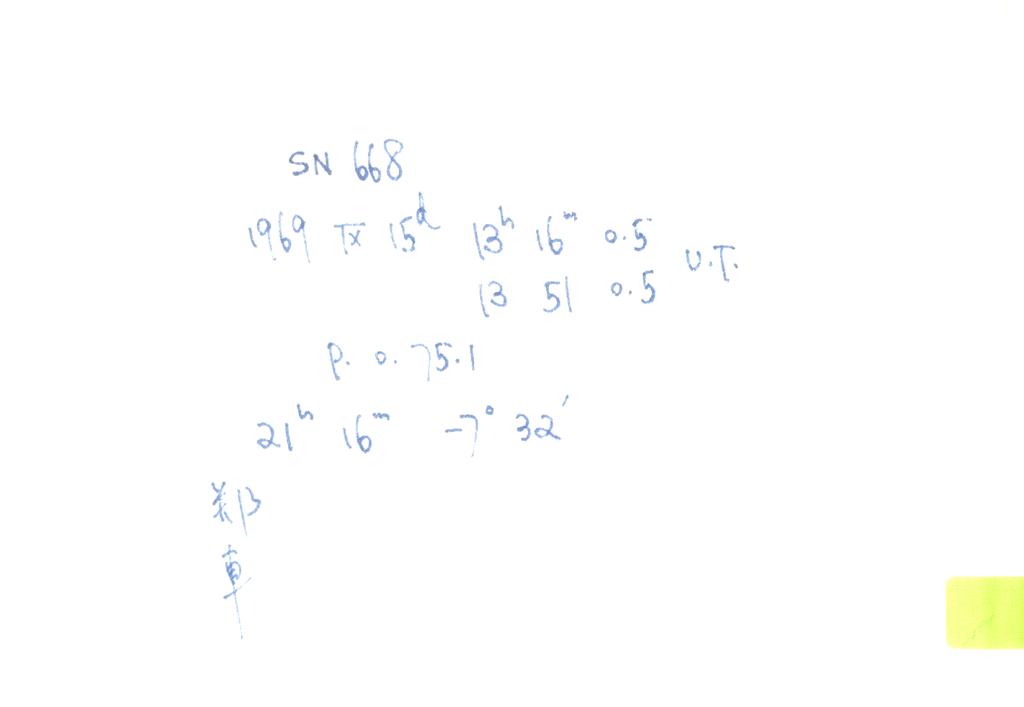 SN 668
1969 IX 15ᵈ 13ʰ 16ᵐ 0.5
U.T.
13 51 0.5
P. 0. 75.1
21ʰ 16ᵐ -7° 32′
郑
車